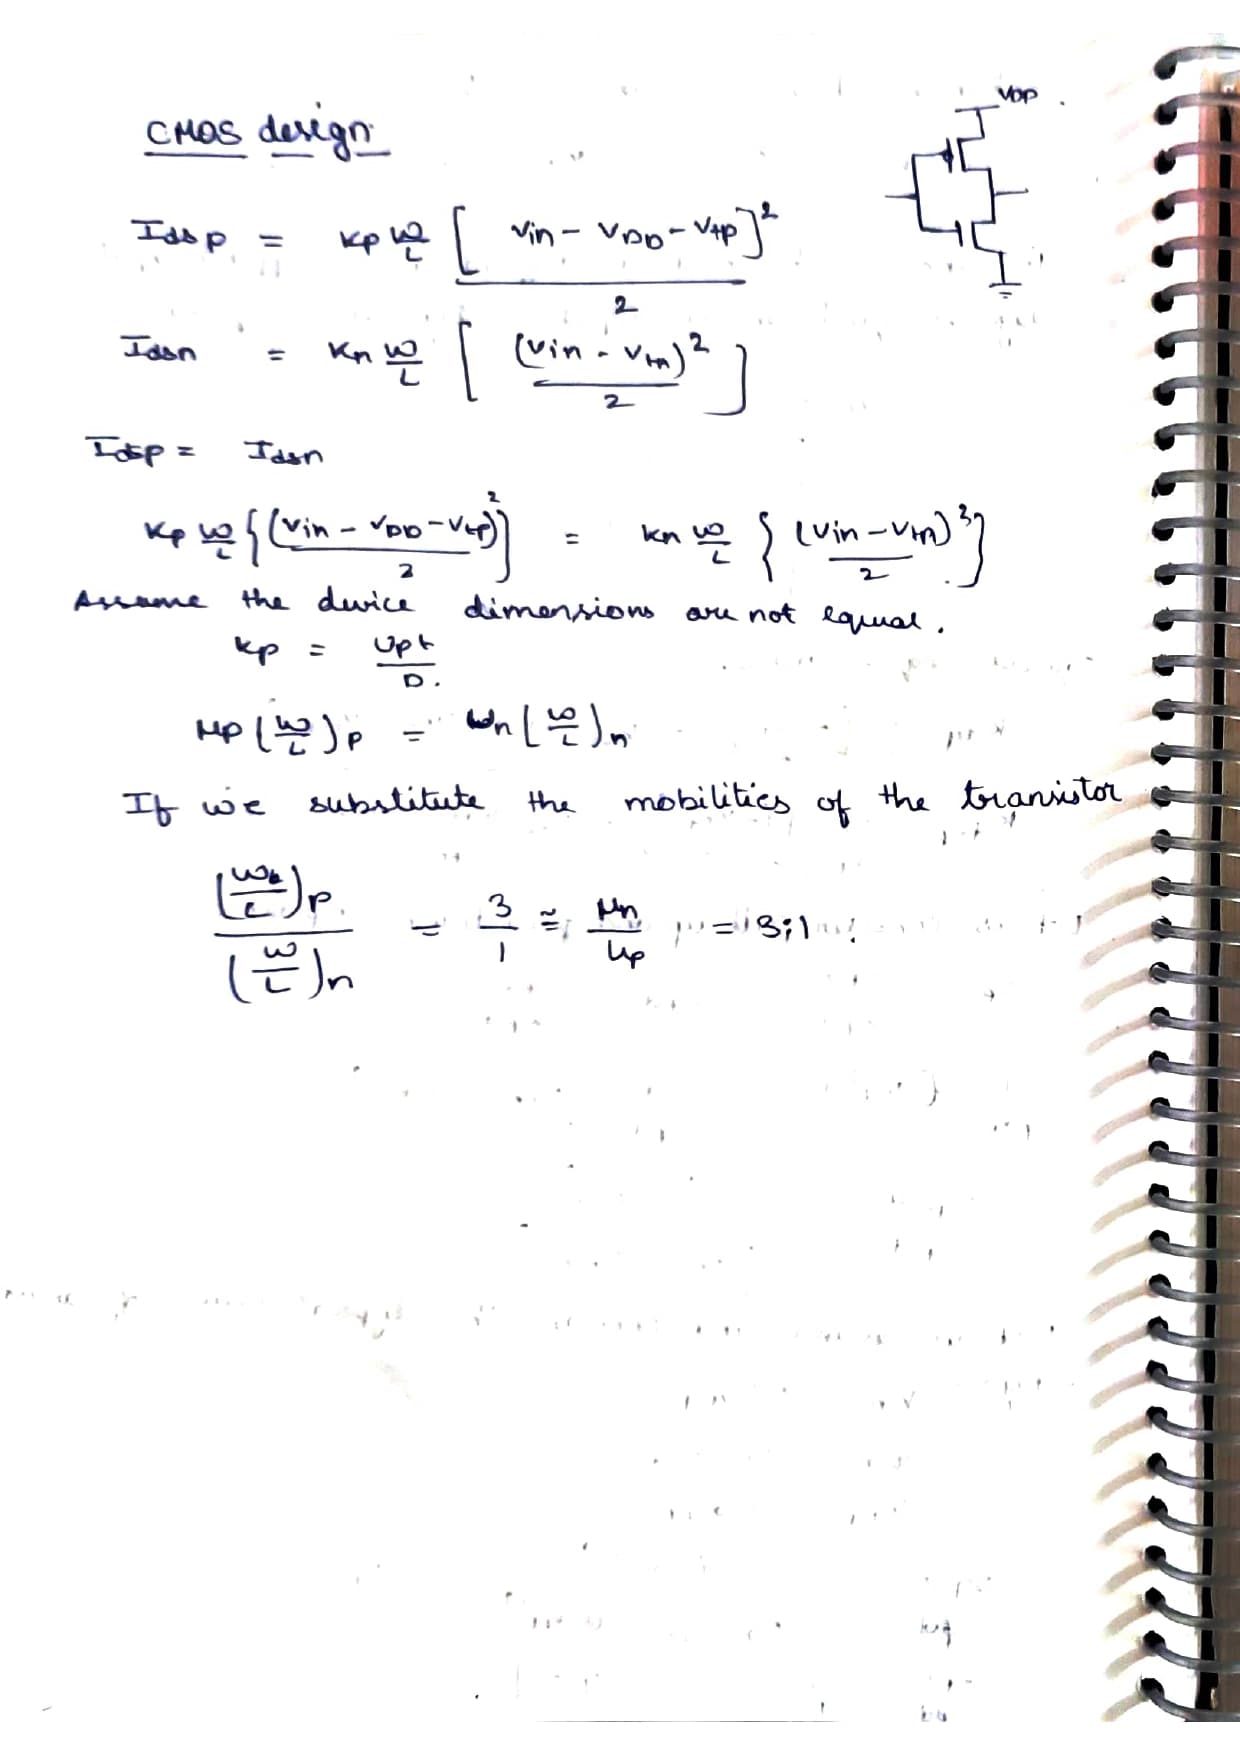 CMOS design
VDD
Idsp = Kp W/L [Vin - VDD - Vtp]²/2
Idsn = Kn W/L [(Vin - Vtn)²/2]
Idsp = Idsn
Kp W/L {(Vin - VDD - Vtp)²/2} = Kn W/L {(Vin - Vtn)²/2}
Assume the device dimensions are not equal.
Kp = Upt/D.
μp (W/L)p = μn (W/L)n
If we substitute the mobilities of the transistor
(W/L)p/(W/L)n = 3/1 ≅ μn/μp = 3;1